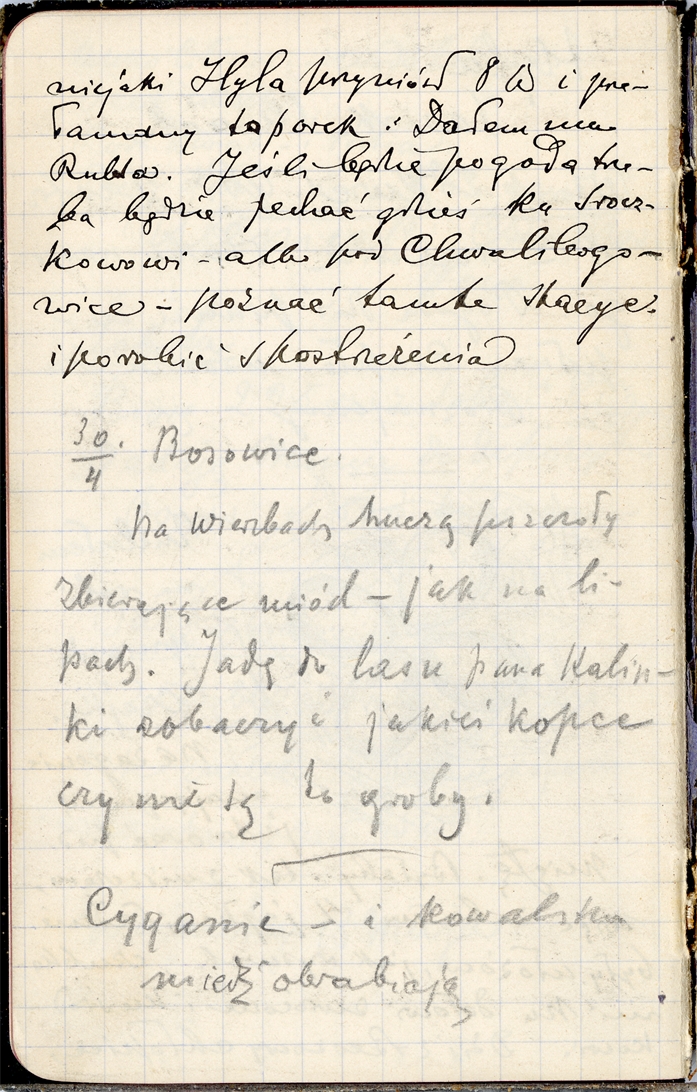 niejaki Hyla przyniósł 8 W i prze-
łamany toporek. Dałem mu
Rubla. Jeśli będzie pogoda trze-
ba będzie jechać gdzieś ku Srocz-
kowowi - albo pod Chwalibogo-
wice - poznać tamte stacye.
i porobić spostrzeżenia
30/4. Bosowice.
Na wierzbach huczą pszczoły
zbierające miód - jak na li-
pach. Jadę do lasu pana Kaliń-
ki zobaczyć jakieś kopce
czy nie są to groby.
Cyganie - i kowalsku
miedź obrabiają